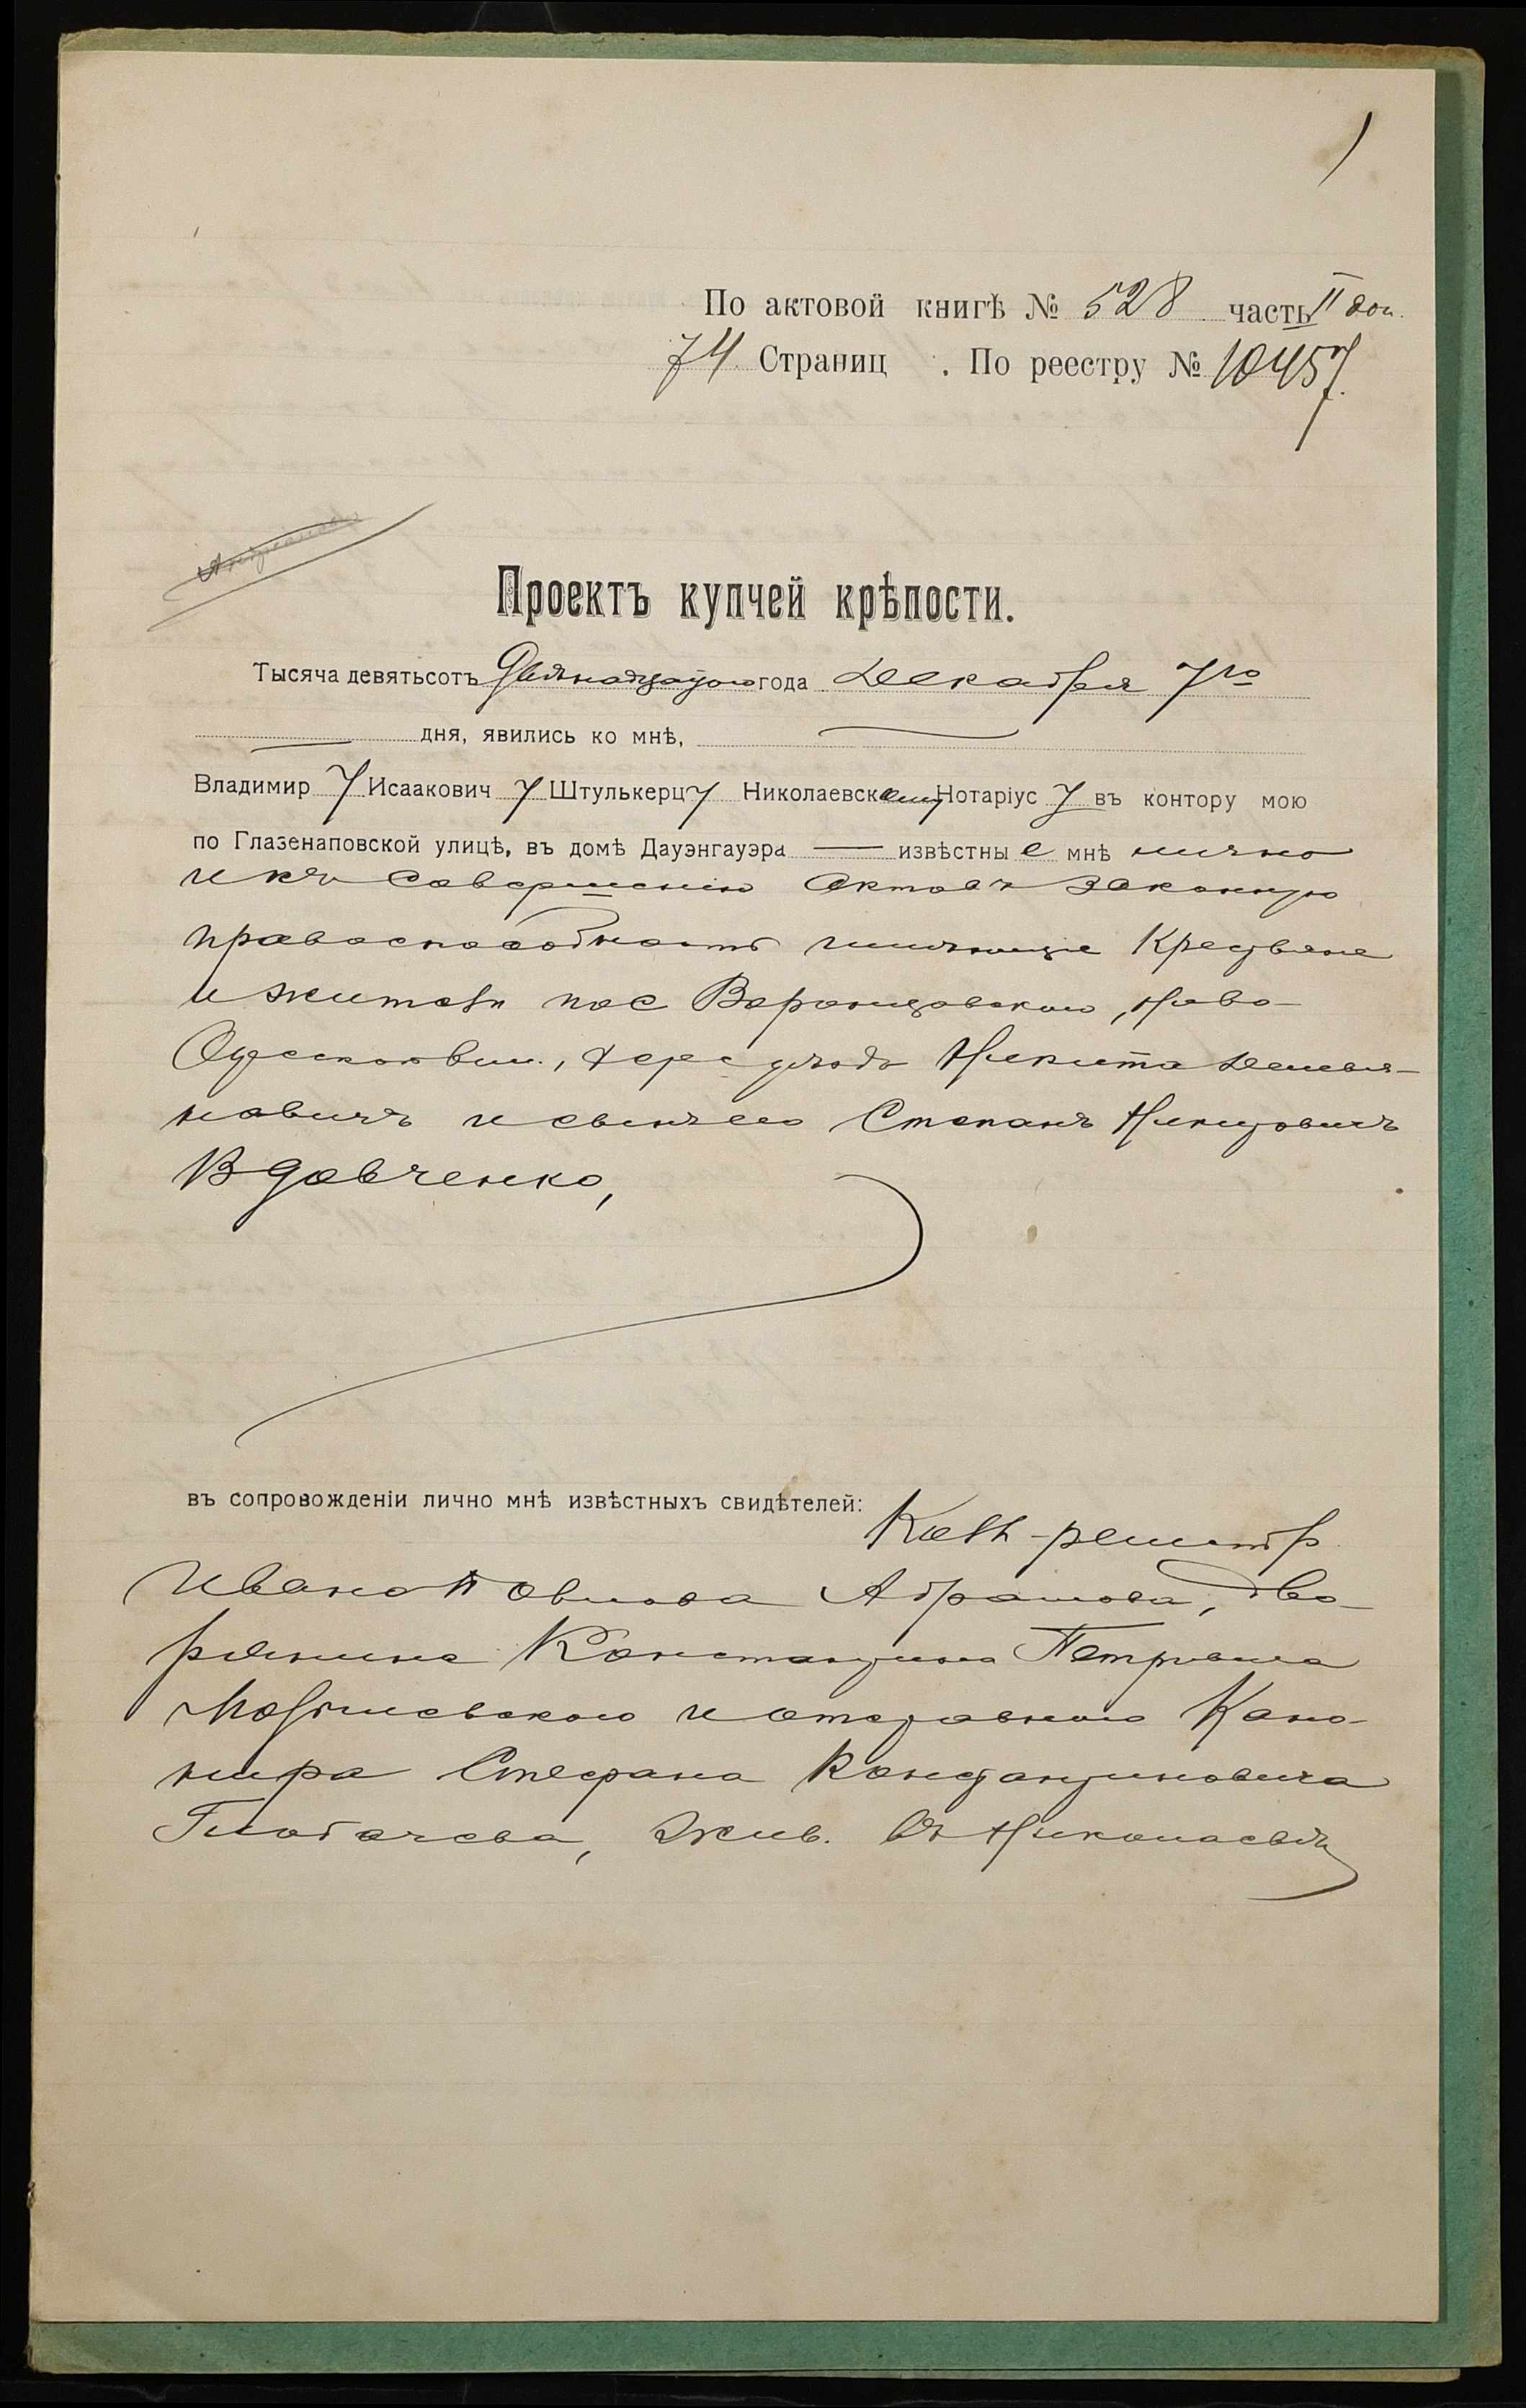 По актовой книгѣ № 528 часть II доп.
74 Страниц . По реестру № 10457.
Проектъ купчей крѣпости.
Тысяча девятьсотъ Двѣнадцатого года Декабря 7го
дня, явились ко мнѣ,
Владимир у Исаакович у Штулькерцу Николаевскому Нотаріус у въ контору мою
по Глазенаповской улицѣ, въ домѣ Дауэнгауэра — извѣстны е мнѣ лично
и къ совершенію актовъ законную
правоспособность имѣющіе Крестьяне
и жители пос Воронцовского, Ново-
Одесской вол., Херс уѣзда Никита Демья-
новичъ и сынъ его Степанъ Никитовичъ
Вдовченко,
въ сопровожденіи лично мнѣ извѣстныхъ свидѣтелей:
Колл-регистр
Ивана Абрамова, Дво-
рянина Константина Петровича
и отставного Кано-
нира Стефана Константиновича
жив. въ Николаевѣ